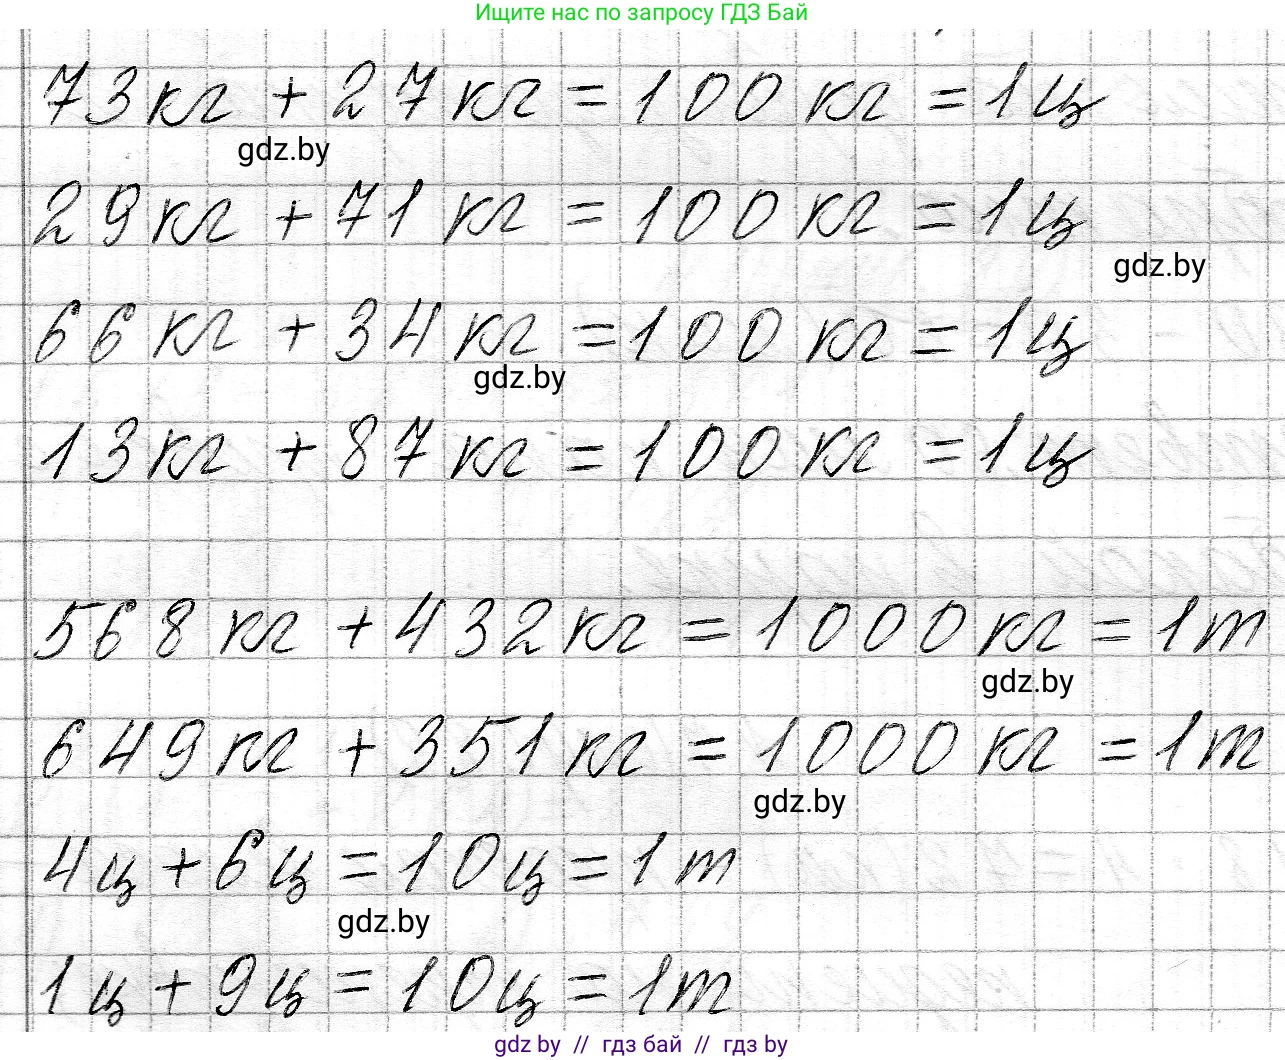 Ищите нас по запросу ГДЗ Бай
73 кг + 27 кг = 100 кг = 1 ц
gdz.by
29 кг + 71 кг = 100 кг = 1 ц
gdz.by
66 кг + 34 кг = 100 кг = 1 ц
gdz.by
13 кг + 87 кг = 100 кг = 1 ц
568 кг + 432 кг = 1000 кг = 1 т
gdz.by
649 кг + 351 кг = 1000 кг = 1 т
gdz.by
4 ц + 6 ц = 10 ц = 1 т
gdz.by
1 ц + 9 ц = 10 ц = 1 т
gdz.by // гдз бай // гдз by